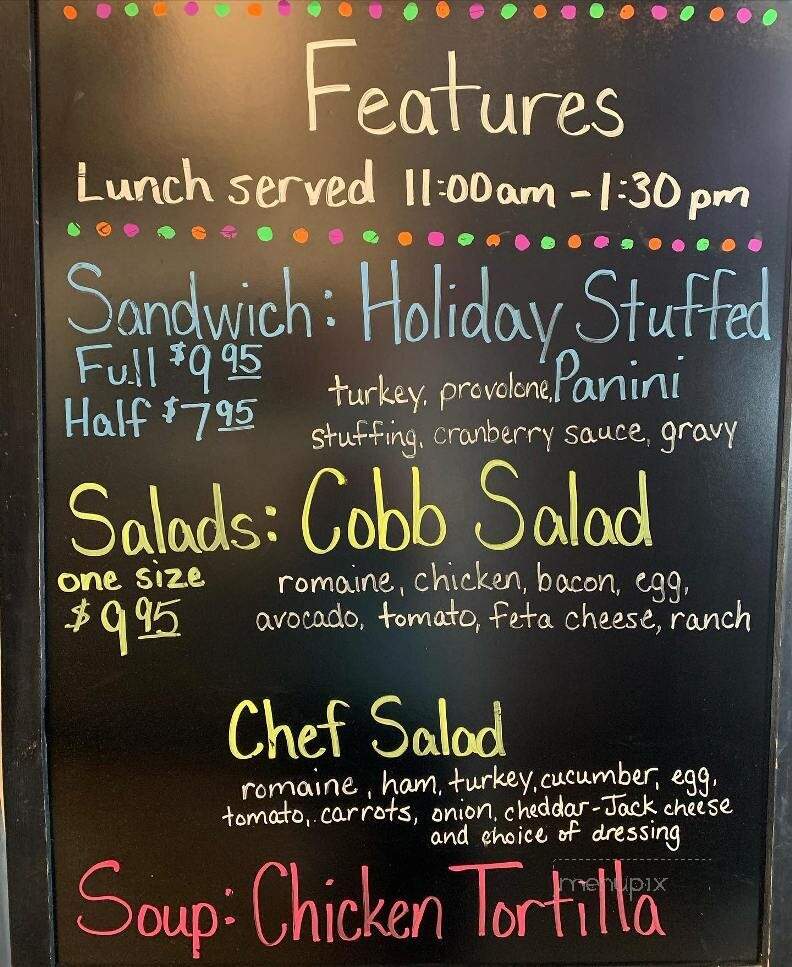 Features
Lunch served 11:00am - 1:30 pm
Sandwich: Holiday Stuffed
Panini
Full $9 95
Half $7 95
turkey, provolone,
stuffing, cranberry sauce, gravy
Salads: Cobb Salad
one size
$9 95
romaine, chicken, bacon, egg,
avocado, tomato, feta cheese, ranch
Chef Salad
romaine, ham, turkey, cucumber, egg,
tomato, carrots, onion, cheddar-Jack cheese
and choice of dressing
Soup: Chicken Tortilla
menupix